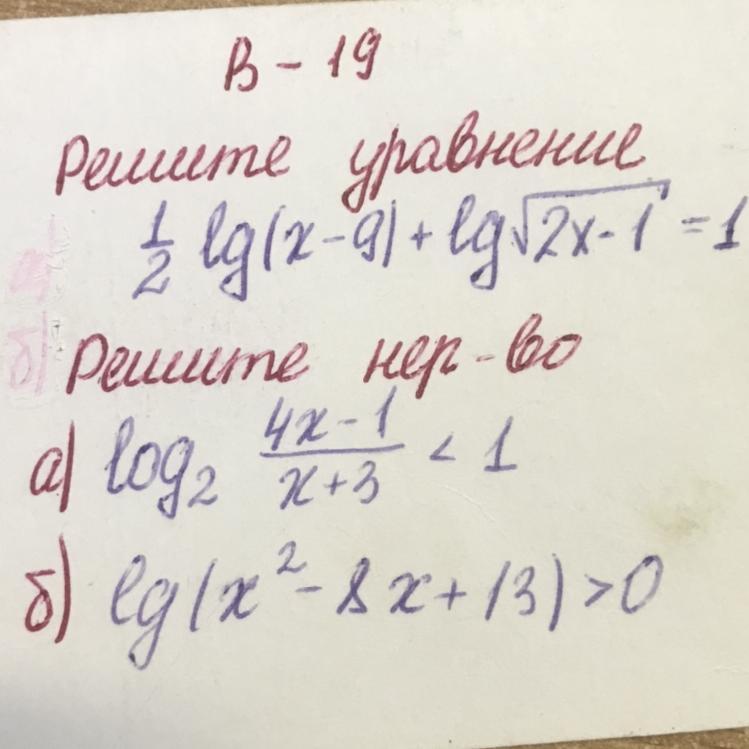 В - 19
Решите уравнение
1/2 lg(x-9) + lg√(2x-1) = 1
Решите нер-во
а) log₂ (4x-1)/(x+3) < 1
б) lg(x² - 8x + 13) > 0